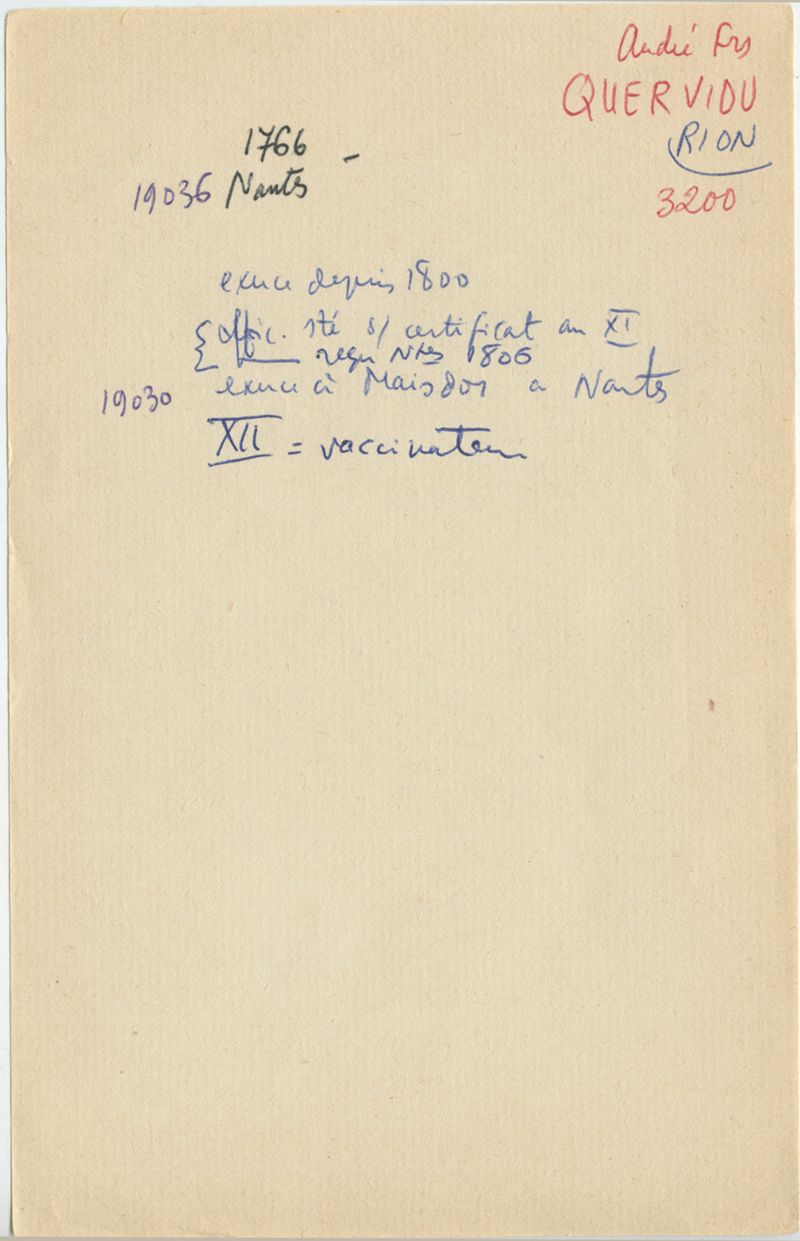 André Frs
QUERVIDU
RION
3200
1766 -
19036 Nantes
exerce depuis 1800
{ offic. sté s/ certificat an XI
{ ___ reçu Ntes 1806
19030 exerce à Maisdon a Nantes
XII = vaccinateur